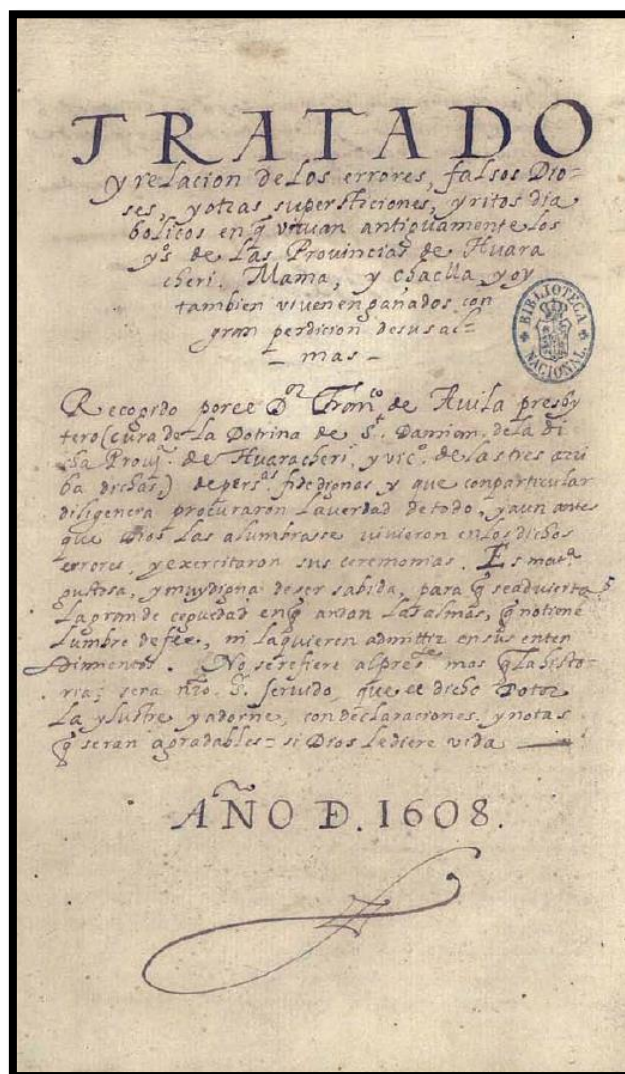 TRATADO
y relacion de los errores, falsos Dio=
ses, y otras supersticiones, y ritos dia
bolicos en q̃ viuian antiguamente los
yˢ. de las Prouincias de Huara
cheri. Mama, y Chaclla y oy
tambien viuen engañados con
gran perdicion de sus al=
- mas -
BIBLIOTECA
NACIONAL
Recogido por el Dᵒʳ Franᶜᵒ de Auila presby
tero (cura de la Dotrina de Sᵗ. Damian, de la di
cha Prouiᵃ. de Huaracheri, y vicᵒ. de las tres arri
ba dichas,) de persᵃˢ. fidedignas y que con particular
diligencia procuraron la verdad de todo, y aun antes
que Dios las alumbrasse vivieron en los dichos
errores, y exercitaron sus ceremonias. Es matᵃ
gustosa, y muy digna de ser sabida, para q̃ se aduierta
la grande ceguedad en q̃ andan las almas, q̃ no tienẽ
lumbre de fee, ni la quieren admittir en sus enten
dimientos. No se refiere al presᵗᵉ mas q̃ la histo-
ria; sera nr̃o. S. seruido, que el dicho Dotor
la ylustre y adorne, con declaraciones, y notas
q̃ seran agradables = si Dios le diere vida —
AÑO D. 1608.